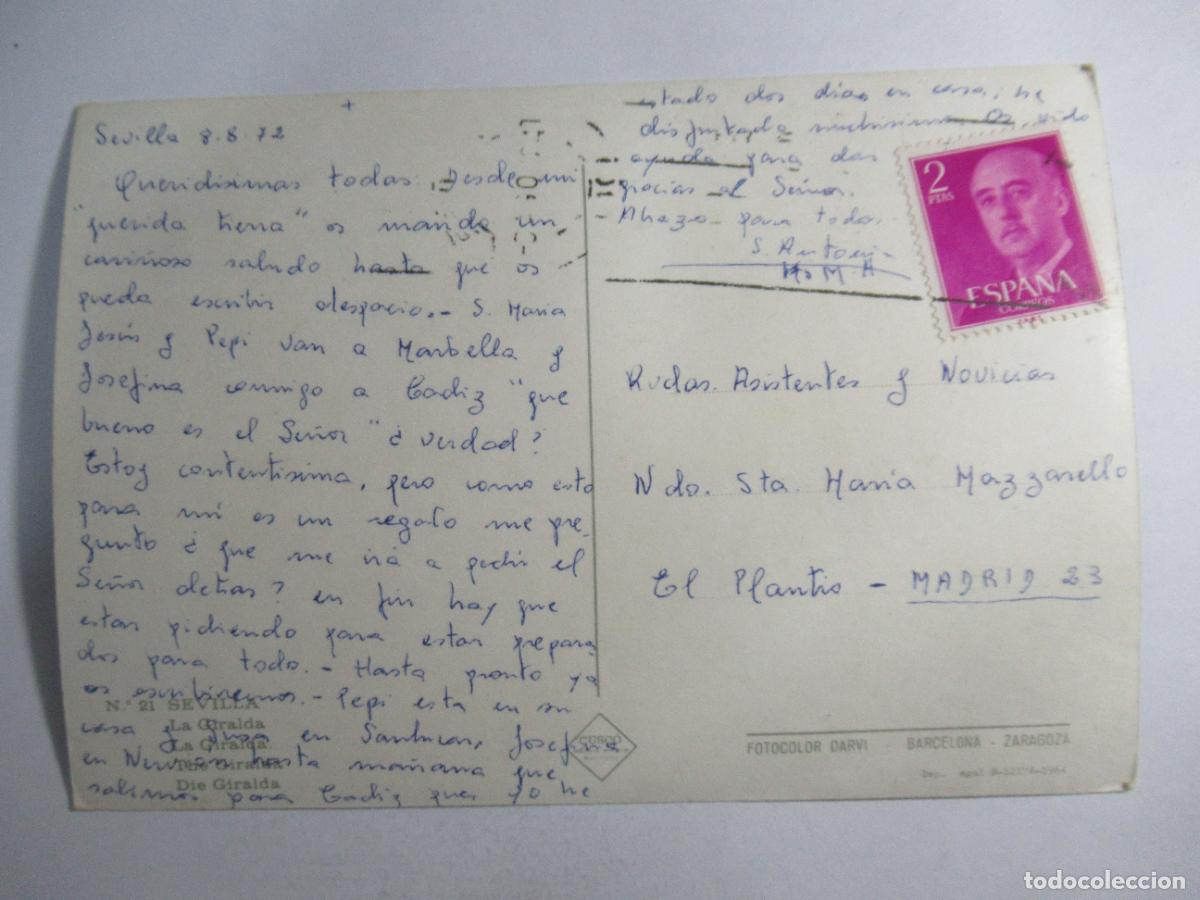 +
Sevilla 8.8.72
Queridisimas todas: Desde mi
"querida tierra" os mando un
cariñoso saludo hasta que os
pueda escribir despacio.- S. Maria
Jesús y Pepi van a Marbella y
Josefina conmigo a Cadiz "que
bueno es el Señor" ¿verdad?
Estoy contentisima, pero como esto
para mi es un regalo me pre-
gunto ¿que me irá a pedir el
Señor detras? en fin hay que
estar pidiendo para estar prepara
dos para todo.- Hasta pronto ya
os escribiremos.- Pepi esta en su
casa y en Sanlucar, Josefina
en Nervion hasta mañana que
salimos para Cadiz pues yo he
estado dos dias en casa; he
disfrutado muchisimo
ayuda para dar
gracias al Señor.
- Abrazo para todas.
S. Antonia
H M A
Rvdas. Asistentes y Novicias
Ndo. Sta. Maria Mazzarello
El Plantio - MADRID 23
2
PTAS
ESPAÑA
CORREOS
N.º 21 SEVILLA
La Giralda
La Giralda
The Giralda
Die Giralda
FOTOCOLOR DARVI - BARCELONA - ZARAGOZA
todocoleccion